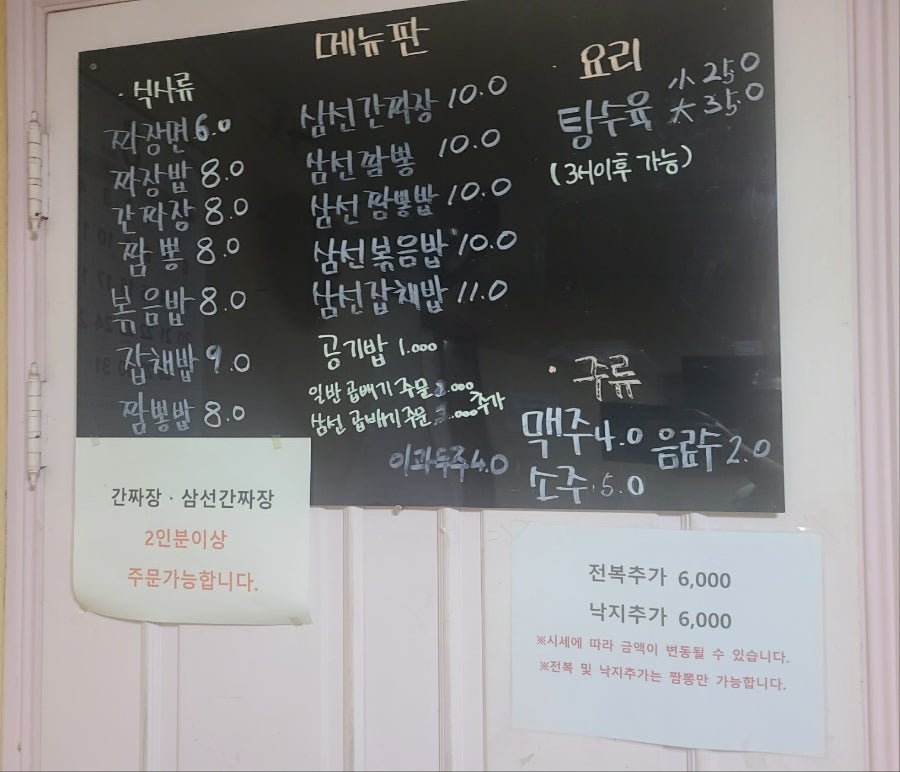 메뉴판
· 식사류
짜장면 6.0
짜장밥 8.0
간짜장 8.0
짬뽕 8.0
볶음밥 8.0
잡채밥 9.0
짬뽕밥 8.0
삼선간짜장 10.0
삼선짬뽕 10.0
삼선짬뽕밥 10.0
삼선볶음밥 10.0
삼선잡채밥 11.0
공기밥 1.000
일반 곱배기 주문 2.000
삼선 곱배기 주문 3.000 추가
이과두주 4.0
· 요리
탕수육 小 25.0
大 35.0
(3시이후 가능)
· 주류
맥주 4.0 음료수 2.0
소주 5.0
간짜장 · 삼선간짜장
2인분이상
주문가능합니다.
전복추가 6,000
낙지추가 6,000
※시세에 따라 금액이 변동될 수 있습니다.
※전복 및 낙지추가는 짬뽕만 가능합니다.